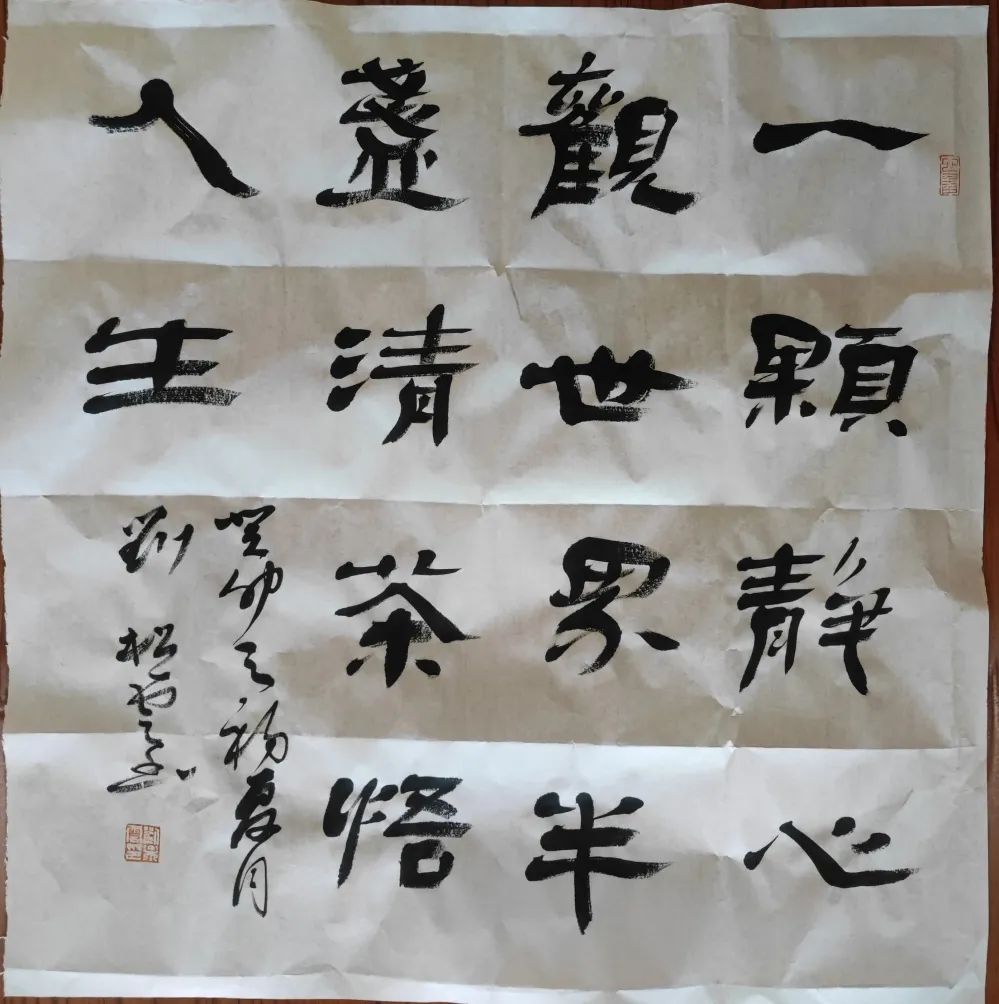 一顆靜心
觀世界半
盞清茶悟
人生
癸卯之初夏月
劉松